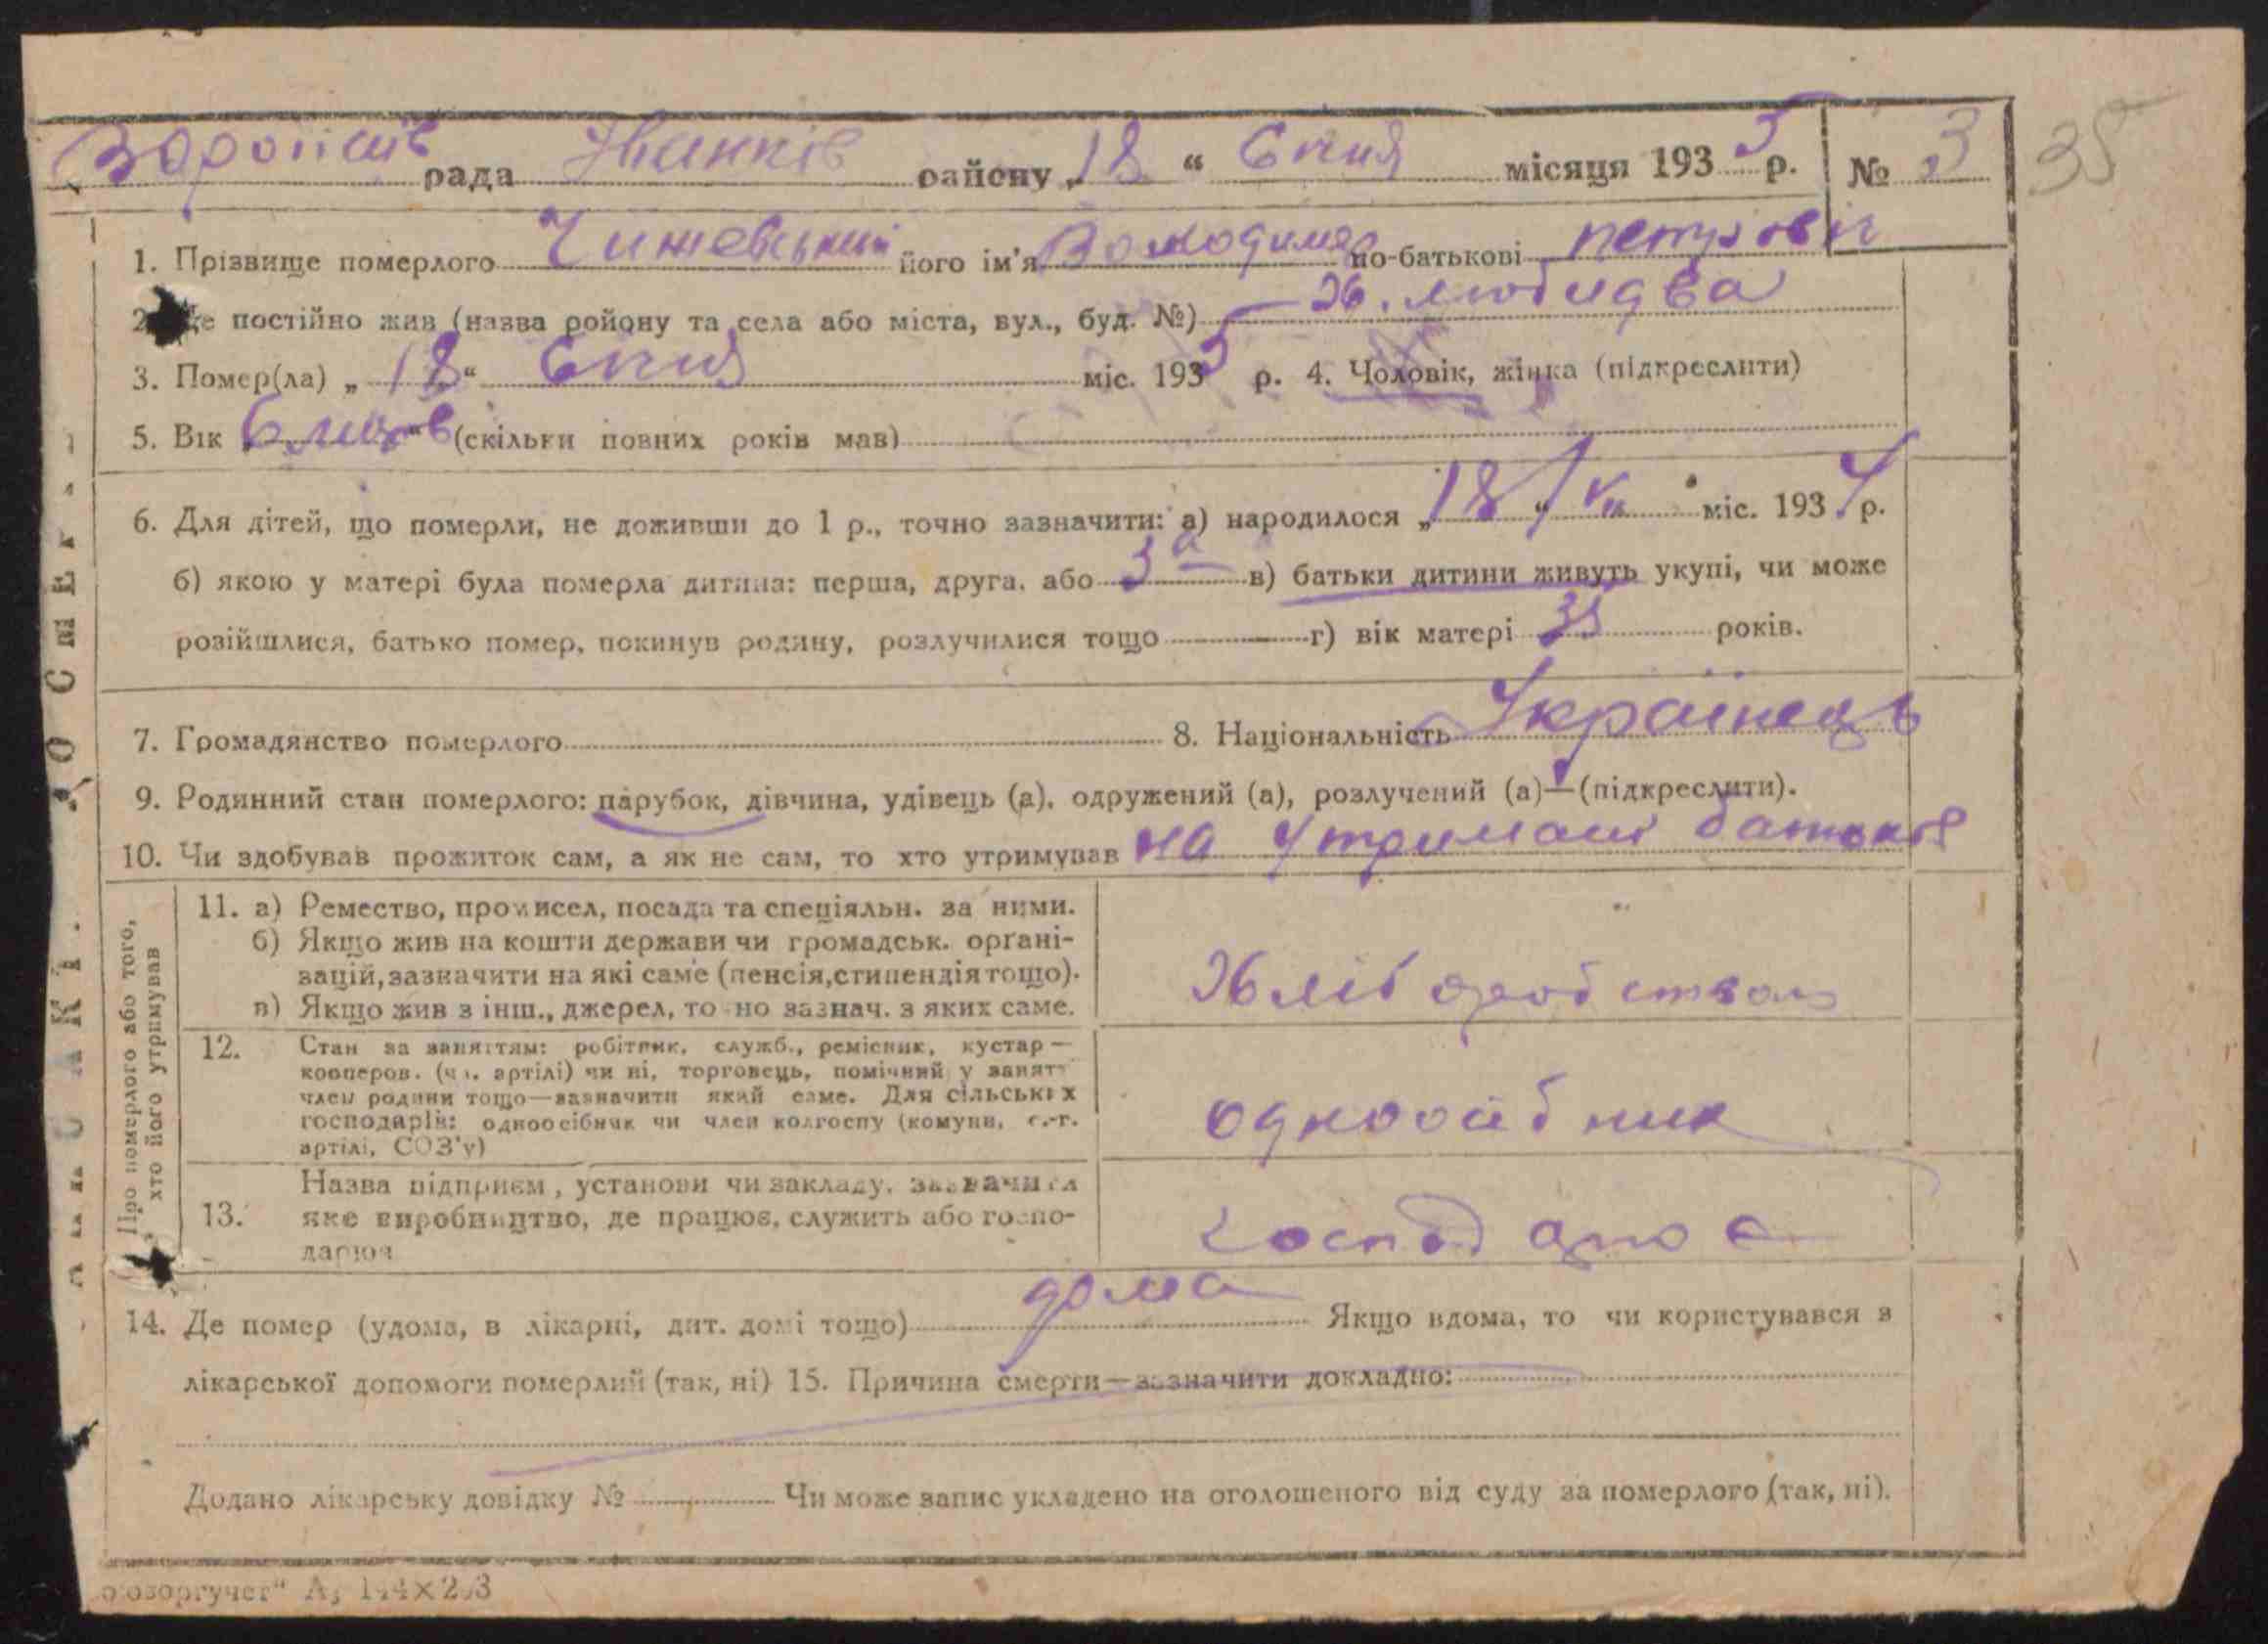 рада Іванків району „ 18 “ Січня місяця 1935 р. № 3 35
1. Прізвище померлого Чижевський його ім'я Володимер по-батькові петрович
2. Де постійно жив (назва району та села або міста, вул., буд. №) х.
3. Помер(ла) „ 18 “ Січня міс. 1935 р. 4. Чоловік, жінка (підкреслити)
5. Вік „ 6 “ (скільки повних років мав)
6. Для дітей, що померли, не доживши до 1 р., точно зазначити: а) народилося „ 18 “ VII міс. 1934 р.
б) якою у матері була померла дитина: перша, друга, або 3а в) батьки дитини живуть укупі, чи може
розійшлися, батько помер, покинув родину, розлучилися тощо г) вік матері 35 років.
7. Громадянство померлого 8. Національність Українець
9. Родинний стан померлого: парубок, дівчина, удівець (а), одружений (а), розлучений (а)—(підкреслити).
10. Чи здобував прожиток сам, а як не сам, то хто утримував на утримані батьків
Про померлого або того,
хто його утримував
11. а) Ремество, промисел, посада та спеціяльн. за ними.
б) Якщо жив на кошти держави чи громадськ. орґані-
зацій, зазначити на які саме (пенсія, стипендія тощо).
в) Якщо жив з інш., джерел, то но зазнач. з яких саме.
Хліборобством
12. Стан за заняттям: робітник, служб., ремісник, кустар—
кооперов. (чл. артілі) чи ні, торговець, помічний у занятт
член родини тощо—зазначити який саме. Для сільських
господарів: одноосібник чи член колгоспу (комуни, с.-г.
артілі, СОЗ'у)
одноосібник
13. Назва підприєм, установи чи закладу, зазначити
яке виробництво, де працює, служить або госпо-
дарює
господарює
14. Де помер (удома, в лікарні, дит. домі тощо) дома Якщо вдома, то чи користувався з
лікарської допомоги померлий (так, ні) 15. Причина смерти—зазначити докладно:
Додано лікарську довідку № Чи може запис укладено на оголошеного від суду за померлого (так, ні).